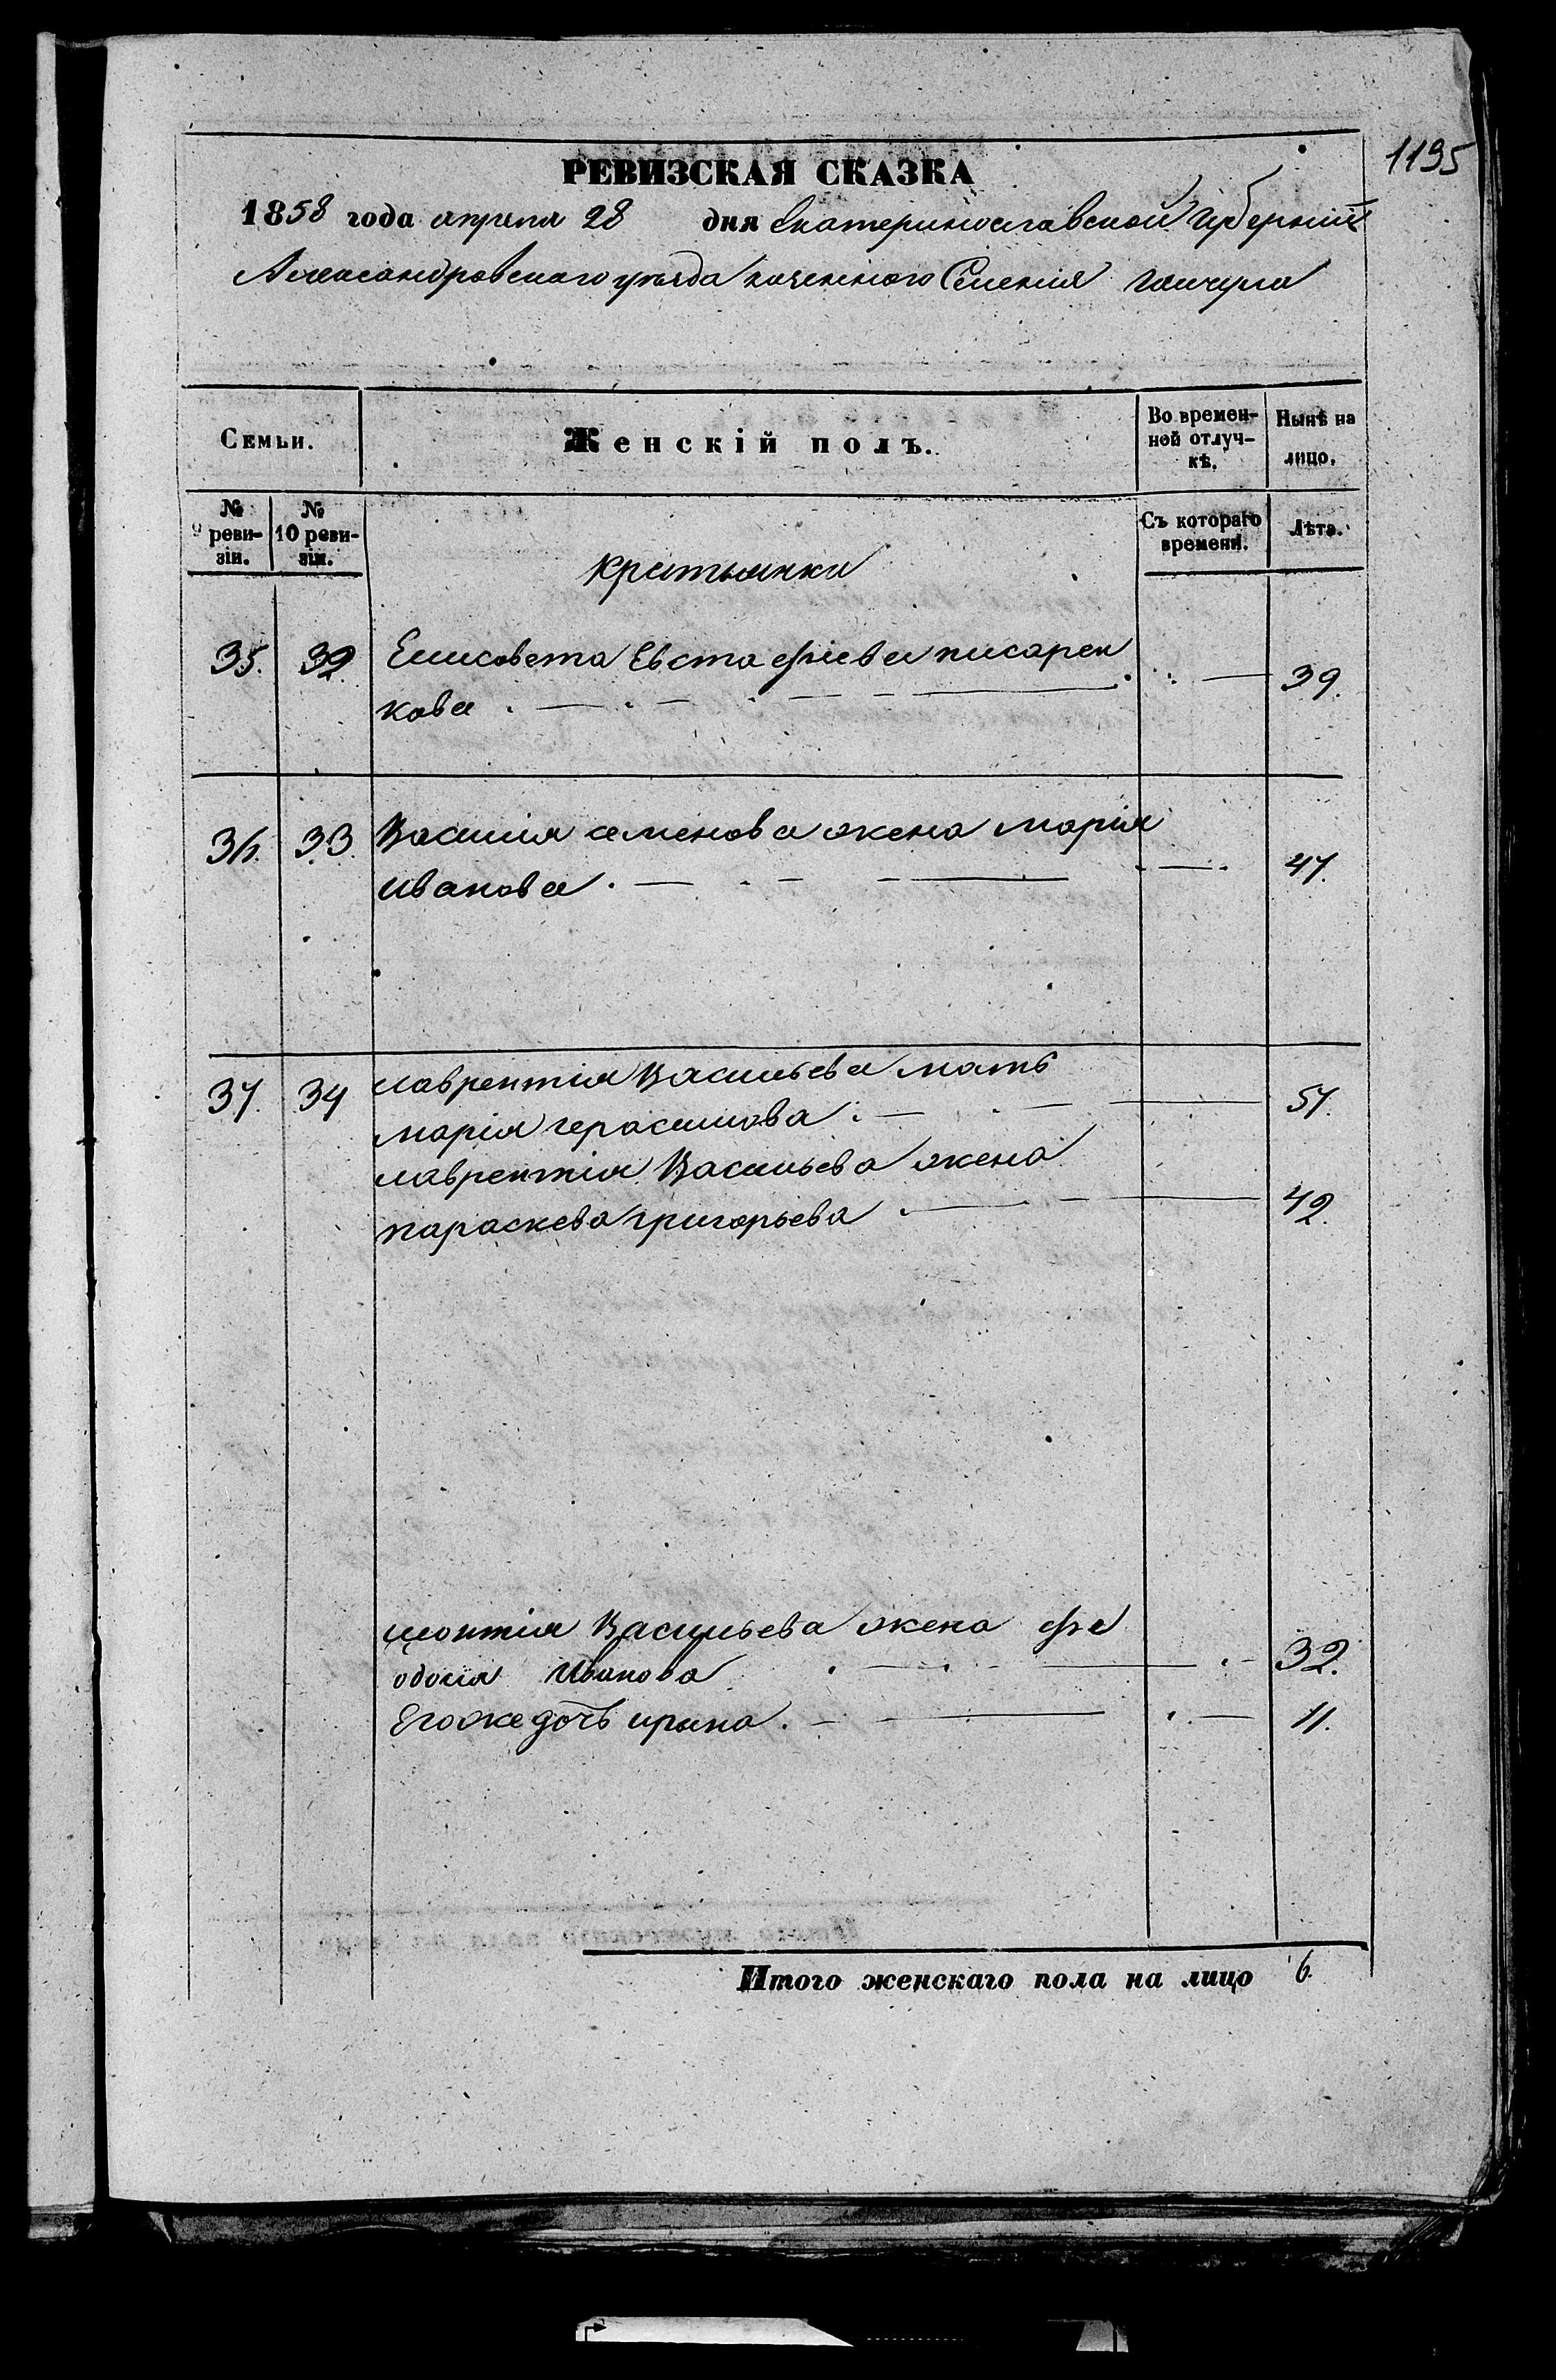 1195
РЕВИЗСКАЯ СКАЗКА
1858 года апреля 28 дня Екатеринославской Губерніи
Александровскаго уезда казенного Селенія Гайчула
Семьи.
Женскій полъ.
Во времен-
ной отлуч-
кѣ.
Нынѣ на
лицо.
№
9 реви-
зіи.
№
10 реви-
зіи.
Съ котораго
времени.
Лѣта.
крестьянки
35. 32. Елисовета Евстафіева писарен
кова 39.
36. 33. Василия семенова жена марія
иванова 47.
37. 34 лаврентія Васильева мать
марія герасимова 57.
лаврентія Васильева жена
параскева григорьева 42.
леонтія Васильева жена фе
одосія Иванова 32.
Егоже дочь ирына 11.
Итого женскаго пола на лицо 6.